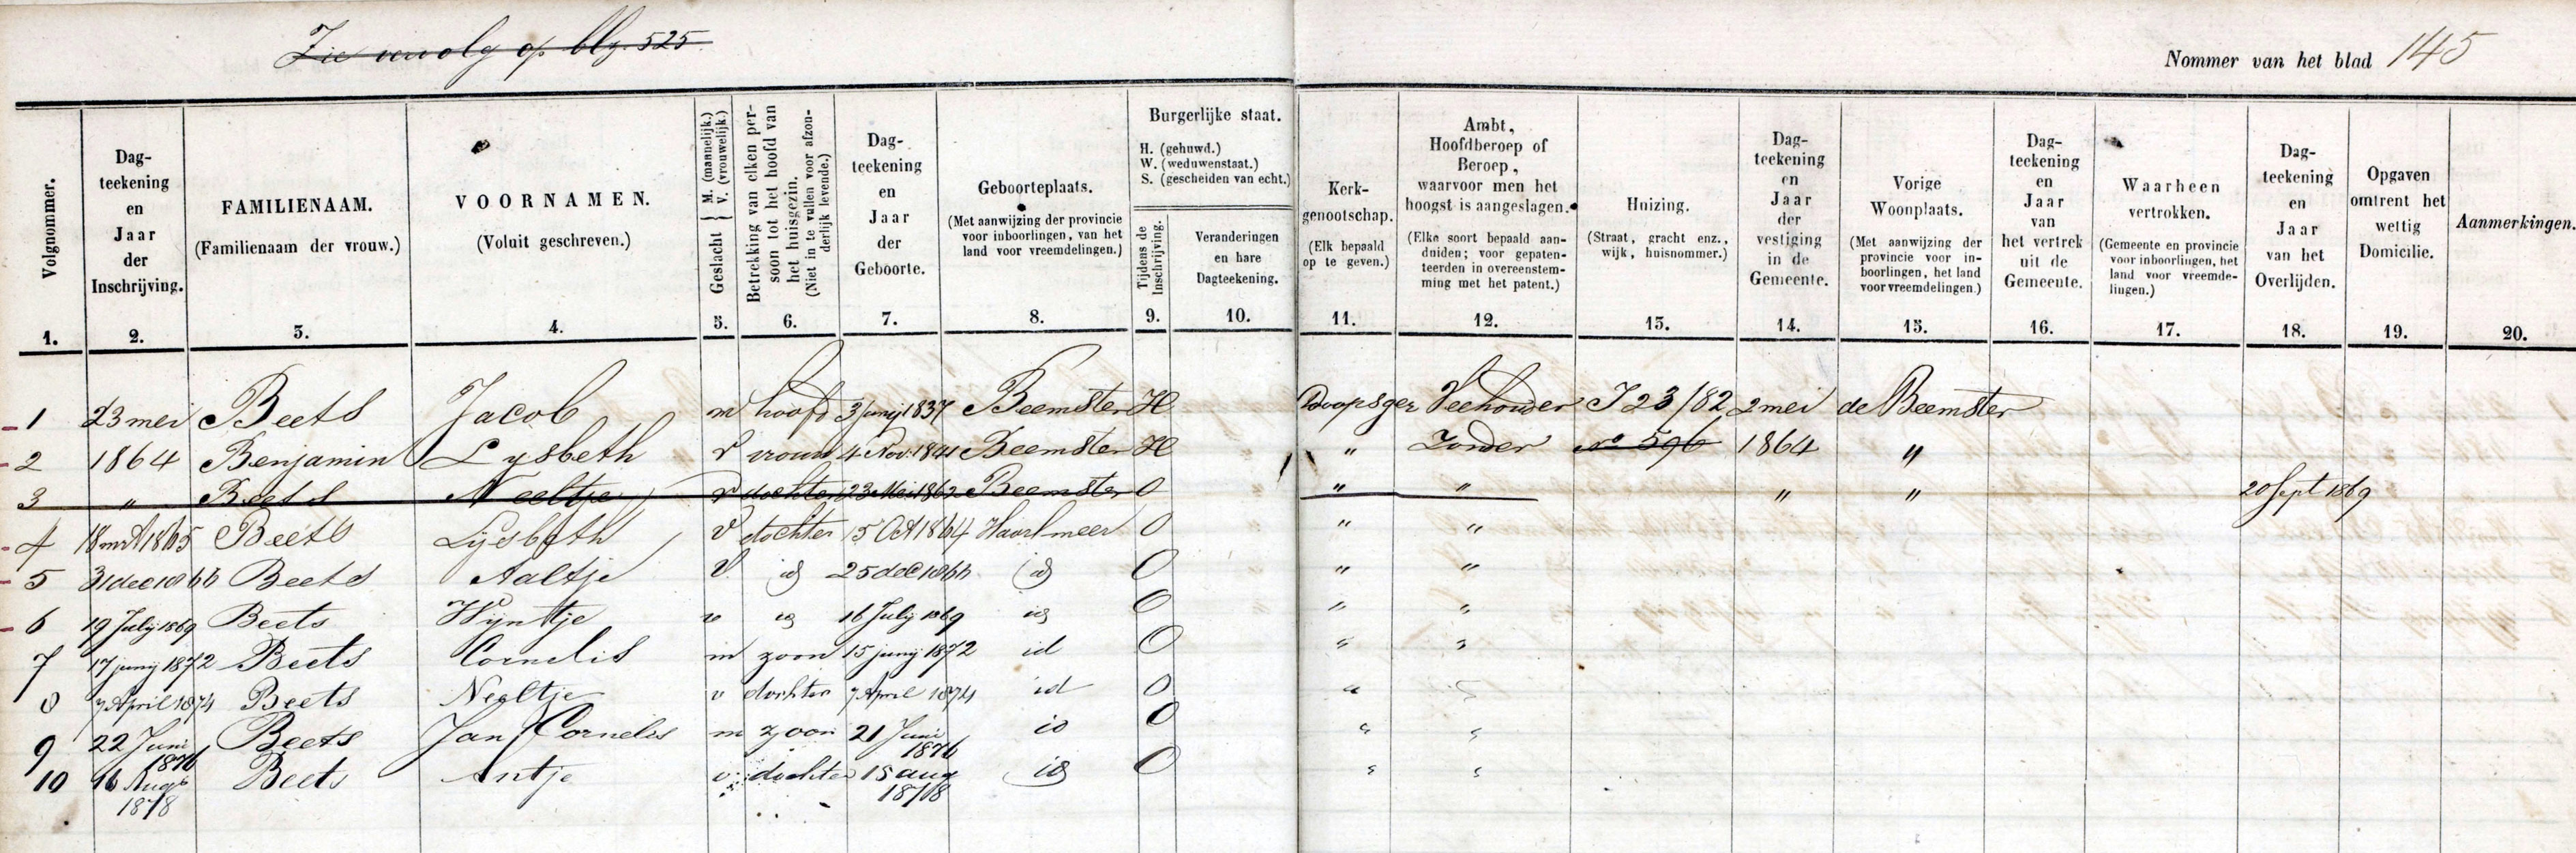 Zie vervolg op blz. 525
Nommer van het blad 145
Volgnommer.
Dag-
teekening
en
Jaar
der
Inschrijving.
FAMILIENAAM.
(Familienaam der vrouw.)
VOORNAMEN.
(Voluit geschreven.)
Geslacht { M. (mannelijk.) V. (vrouwelijk.)
Betrekking van elken per-
soon tot het hoofd van
het huisgezin.
(Niet in te vullen voor afzon-
derlijk levende.)
Dag-
teekening
en
Jaar
der
Geboorte.
Geboorteplaats.
(Met aanwijzing der provincie
voor inboorlingen, van het
land voor vreemdelingen.)
Burgerlijke staat.
H. (gehuwd.)
W. (weduwenstaat.)
S. (gescheiden van echt.)
Tijdens de
Inschrijving.
Veranderingen
en hare
Dagteekening.
Kerk-
genootschap.
(Elk bepaald
op te geven.)
Ambt,
Hoofdberoep of
Beroep,
waarvoor men het
hoogst is aangeslagen.
(Elke soort bepaald aan-
duiden; voor gepaten-
teerden in overeenstem-
ming met het patent.)
Huizing.
(Straat, gracht enz.,
wijk, huisnommer.)
Dag-
teekening
en
Jaar
der
vestiging
in de
Gemeente.
Vorige
Woonplaats.
(Met aanwijzing der
provincie voor in-
boorlingen, het land
voor vreemdelingen.)
Dag-
teekening
en
Jaar
van
het vertrek
uit de
Gemeente.
Waarheen
vertrokken.
(Gemeente en provincie
voor inboorlingen, het
land voor vreemde-
lingen.)
Dag-
teekening
en
Jaar
van het
Overlijden.
Opgaven
omtrent het
wettig
Domicilie.
Aanmerkingen.
1. 2. 3. 4. 5. 6. 7. 8. 9. 10. 11. 12. 13. 14. 15. 16. 17. 18. 19. 20.
1 23 mei Beets Jacob m hoofd 3 junij 1837 Beemster H Doopsgez Veehouder J 23/82 2 mei de Beemster
2 1864 Benjamin Lysbeth v vrouw 4 Nov. 1841 Beemster H " Zonder no 596 1864 "
3 " Beets Neeltje v dochter 23 Mei 1862 Beemster O " " " " 20 Sept 1869
4 18 mrt 1865 Beets Lijsbeth v dochter 15 Oct 1864 Haarl.meer O " "
5 31 dec 1866 Beets Aaltje v id 25 dec 1866 id O " "
6 19 July 1869 Beets Wijntje v id 16 July 1869 id O " "
7 17 junij 1872 Beets Cornelis m zoon 15 junij 1872 id O " "
8 7 April 1874 Beets Neeltje v dochter 7 April 1874 id O " "
9 22 Juni 1876 Beets Jan Cornelis m zoon 21 Juni 1876 id O " "
10 16 Augs 1878 Beets Antje v dochter 15 aug 1878 id O " "